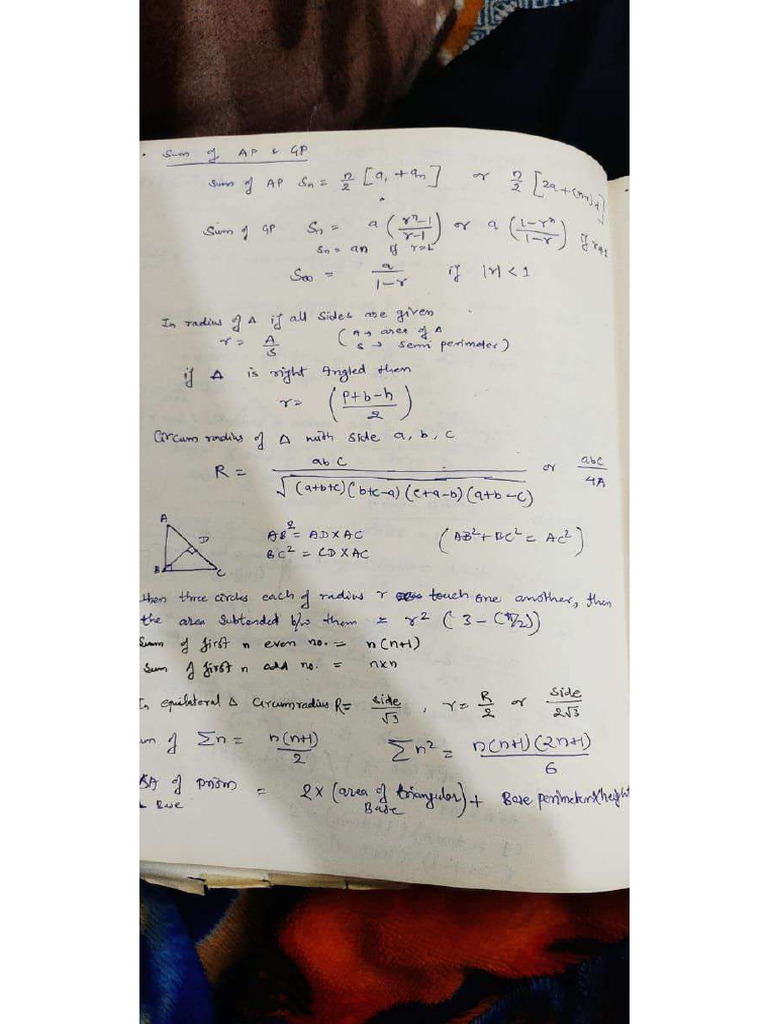 • Sum of AP & GP
Sum of AP Sn = n/2 [a₁ + an] or n/2 [2a + (n-1)d]
Sum of GP Sn = a ( rⁿ-1 / r-1 ) or a ( 1-rⁿ / 1-r ) if
Sn = an if r=1
S∞ = a / 1-r if |r| < 1
In radius of Δ if all sides are given
r = A/S ( A → area of Δ
S → semi perimeter)
if Δ is right Angled then
r = ( P+b-h / 2 )
Circum radius of Δ with side a, b, c
R = abc / √(a+b+c)(b+c-a)(c+a-b)(a+b-c) or abc / 4A
A
D
B C
AB² = AD×AC (AB² + BC² = AC²)
BC² = CD×AC
three circles each of radius r touch one another, then
the area subtended b/w them = r² ( 3 - (π/2))
Sum of first n even no. = n(n+1)
Sum of first n odd no. = n×n
In equilateral Δ circumradius R = side/√3 , r = R/2 or side/2√3
of Σn = n(n+1)/2 Σn² = n(n+1)(2n+1)/6
SA of prism = 2 × (area of triangular) + Base perimeter×(height
Base Base